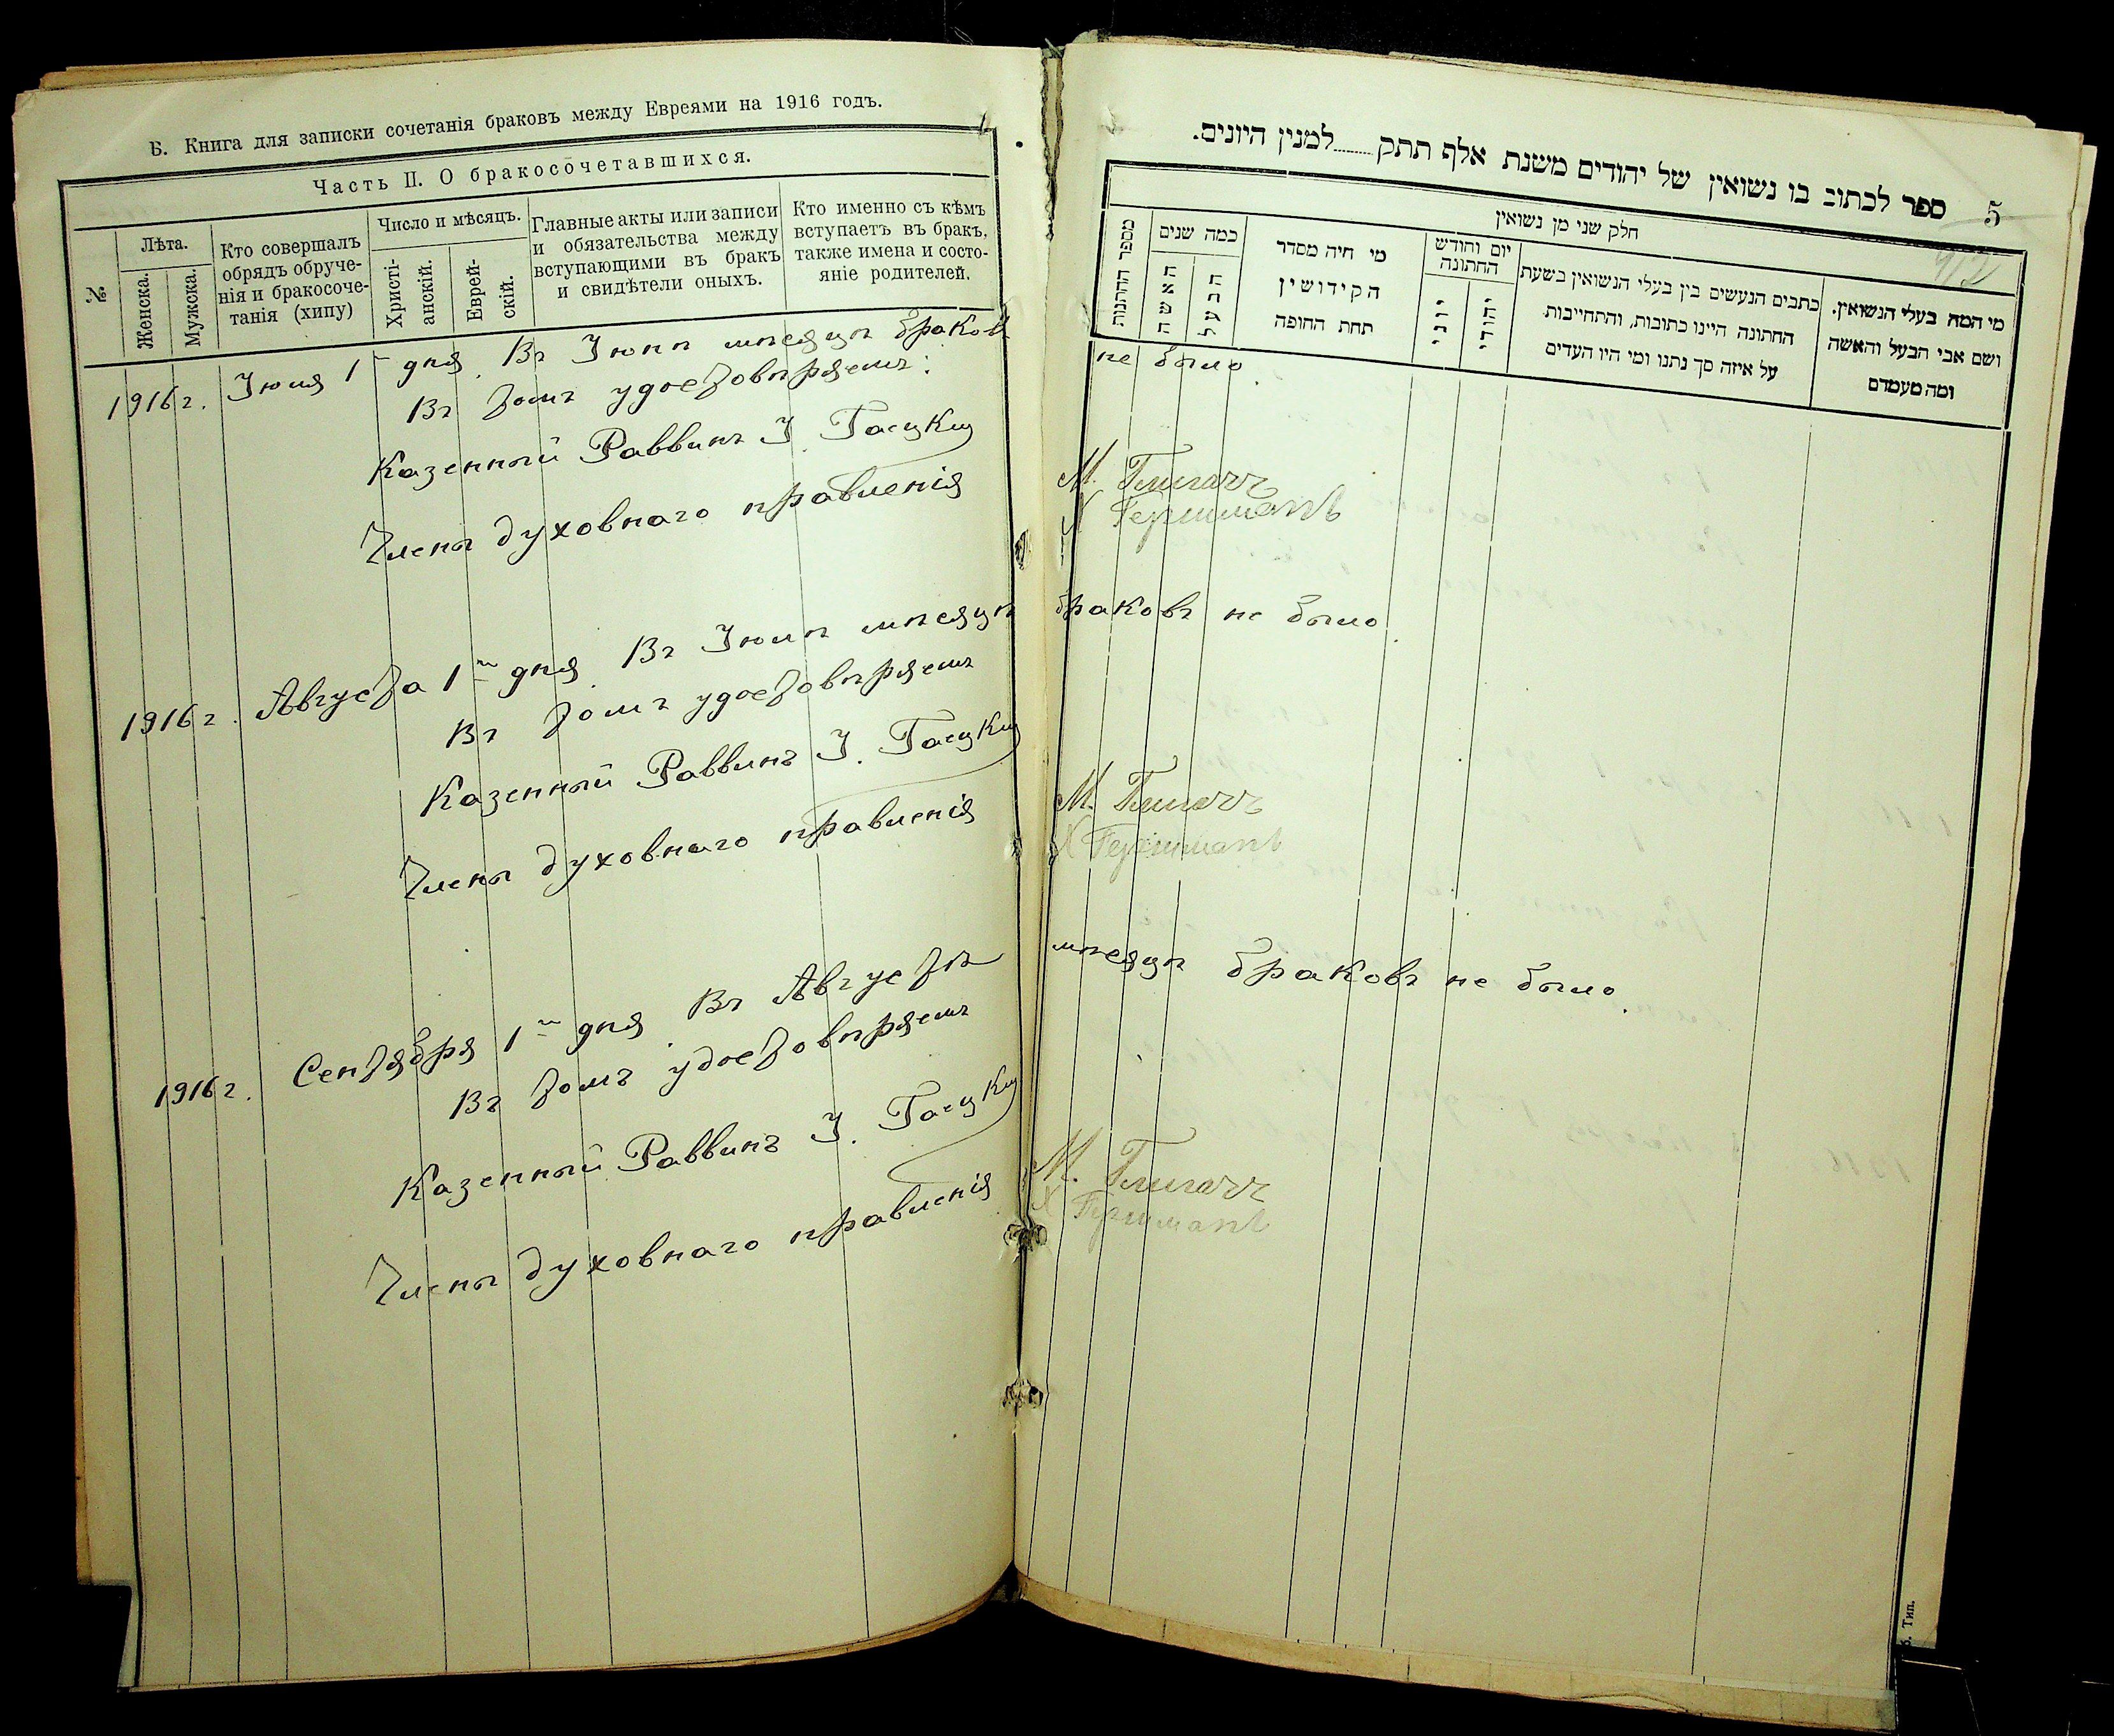 Б. Книга для записки сочетанія браковъ между Евреями на 1916 годъ.
Часть II. О бракосочетавшихся.
№
Лѣта.
Женска.
Мужска.
Кто совершалъ
обрядъ обруче-
нія и бракосоче-
танія (хипу)
Число и мѣсяцъ.
Христі-
анскій.
Еврей-
скій.
Главные акты или записи
и обязательства между
вступающими въ бракъ
и свидѣтели оныхъ.
Кто именно съ кѣмъ
вступаетъ въ бракъ,
также имена и состо-
яніе родителей.
1916 г. Іюля 1 дня. Въ Іюнѣ мѣсяцѣ браковъ не было.
Въ томъ удостовѣряемъ:
Казенный Раввинъ І. Гасцкій
Члены духовнаго правленія
М.
Х Гершманъ
1916 г. Августа 1го дня. Въ Іюлѣ мѣсяцѣ браковъ не было.
Въ томъ удостовѣряемъ
Казенный Раввинъ І. Гасцкій
Члены духовнаго правленія
М.
Х Гершманъ
1916 г. Сентября 1го дня. Въ Августѣ мѣсяцѣ браковъ не было.
Въ томъ удостовѣряемъ
Казенный Раввинъ І. Гасцкій
Члены духовнаго правленія
М.
Х Гершманъ
5
ספר לכתוב בו נשואין של יהודים משנת אלף תתק......למנין היונים.
חלק שני מן נשואין
מספר החתונות
כמה שנים
האשה
הבעל
מי היה מסדר
הקידושין
תחת החופה
יום וחודש
החתונה
יוני
יהודי
כתבים הנעשים בין בעלי הנשואין בשעת
החתונה היינו כתובות, והתחייבות
על איזה סך נתנו ומי היו העדים
מי המה בעלי הנשואין.
ושם אבי הבעל והאשה
ומה מעמדם
Тип.